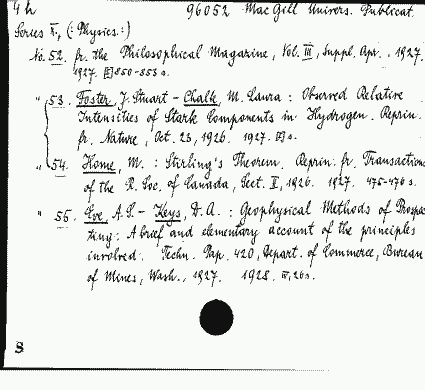 4h 96052 Mac Gill Univers. Publicat.
Series X, (: Physics :)
No. 52. fr. the Philosophical Magazine, Vol. III, Suppl. Apr. . 1927.
1927. 850-853 s.
" 53. Foster, J. Stuart - Chalk, M. Laura : Observed Relative
Intensities of Stark Components in Hydrogen. Reprin.
fr. Nature, Oct. 23, 1926. 1927. s.
" 54. Home, M. : Stirling's Theorem. Reprin. fr. Transaction
of the R. Soc. of Canada, Sect. II, 1926. 1927. 475-476 s.
" 55. Eve, A.S. - Keys, D.A. : Geophysical Methods of Prospec
ting. A brief and elementary account of the principles
involved. Techn. Pap. 420, Depart. of Commerce, Bureau
of Mines, Wash., 1927. 1928. IV, 26 s.
S